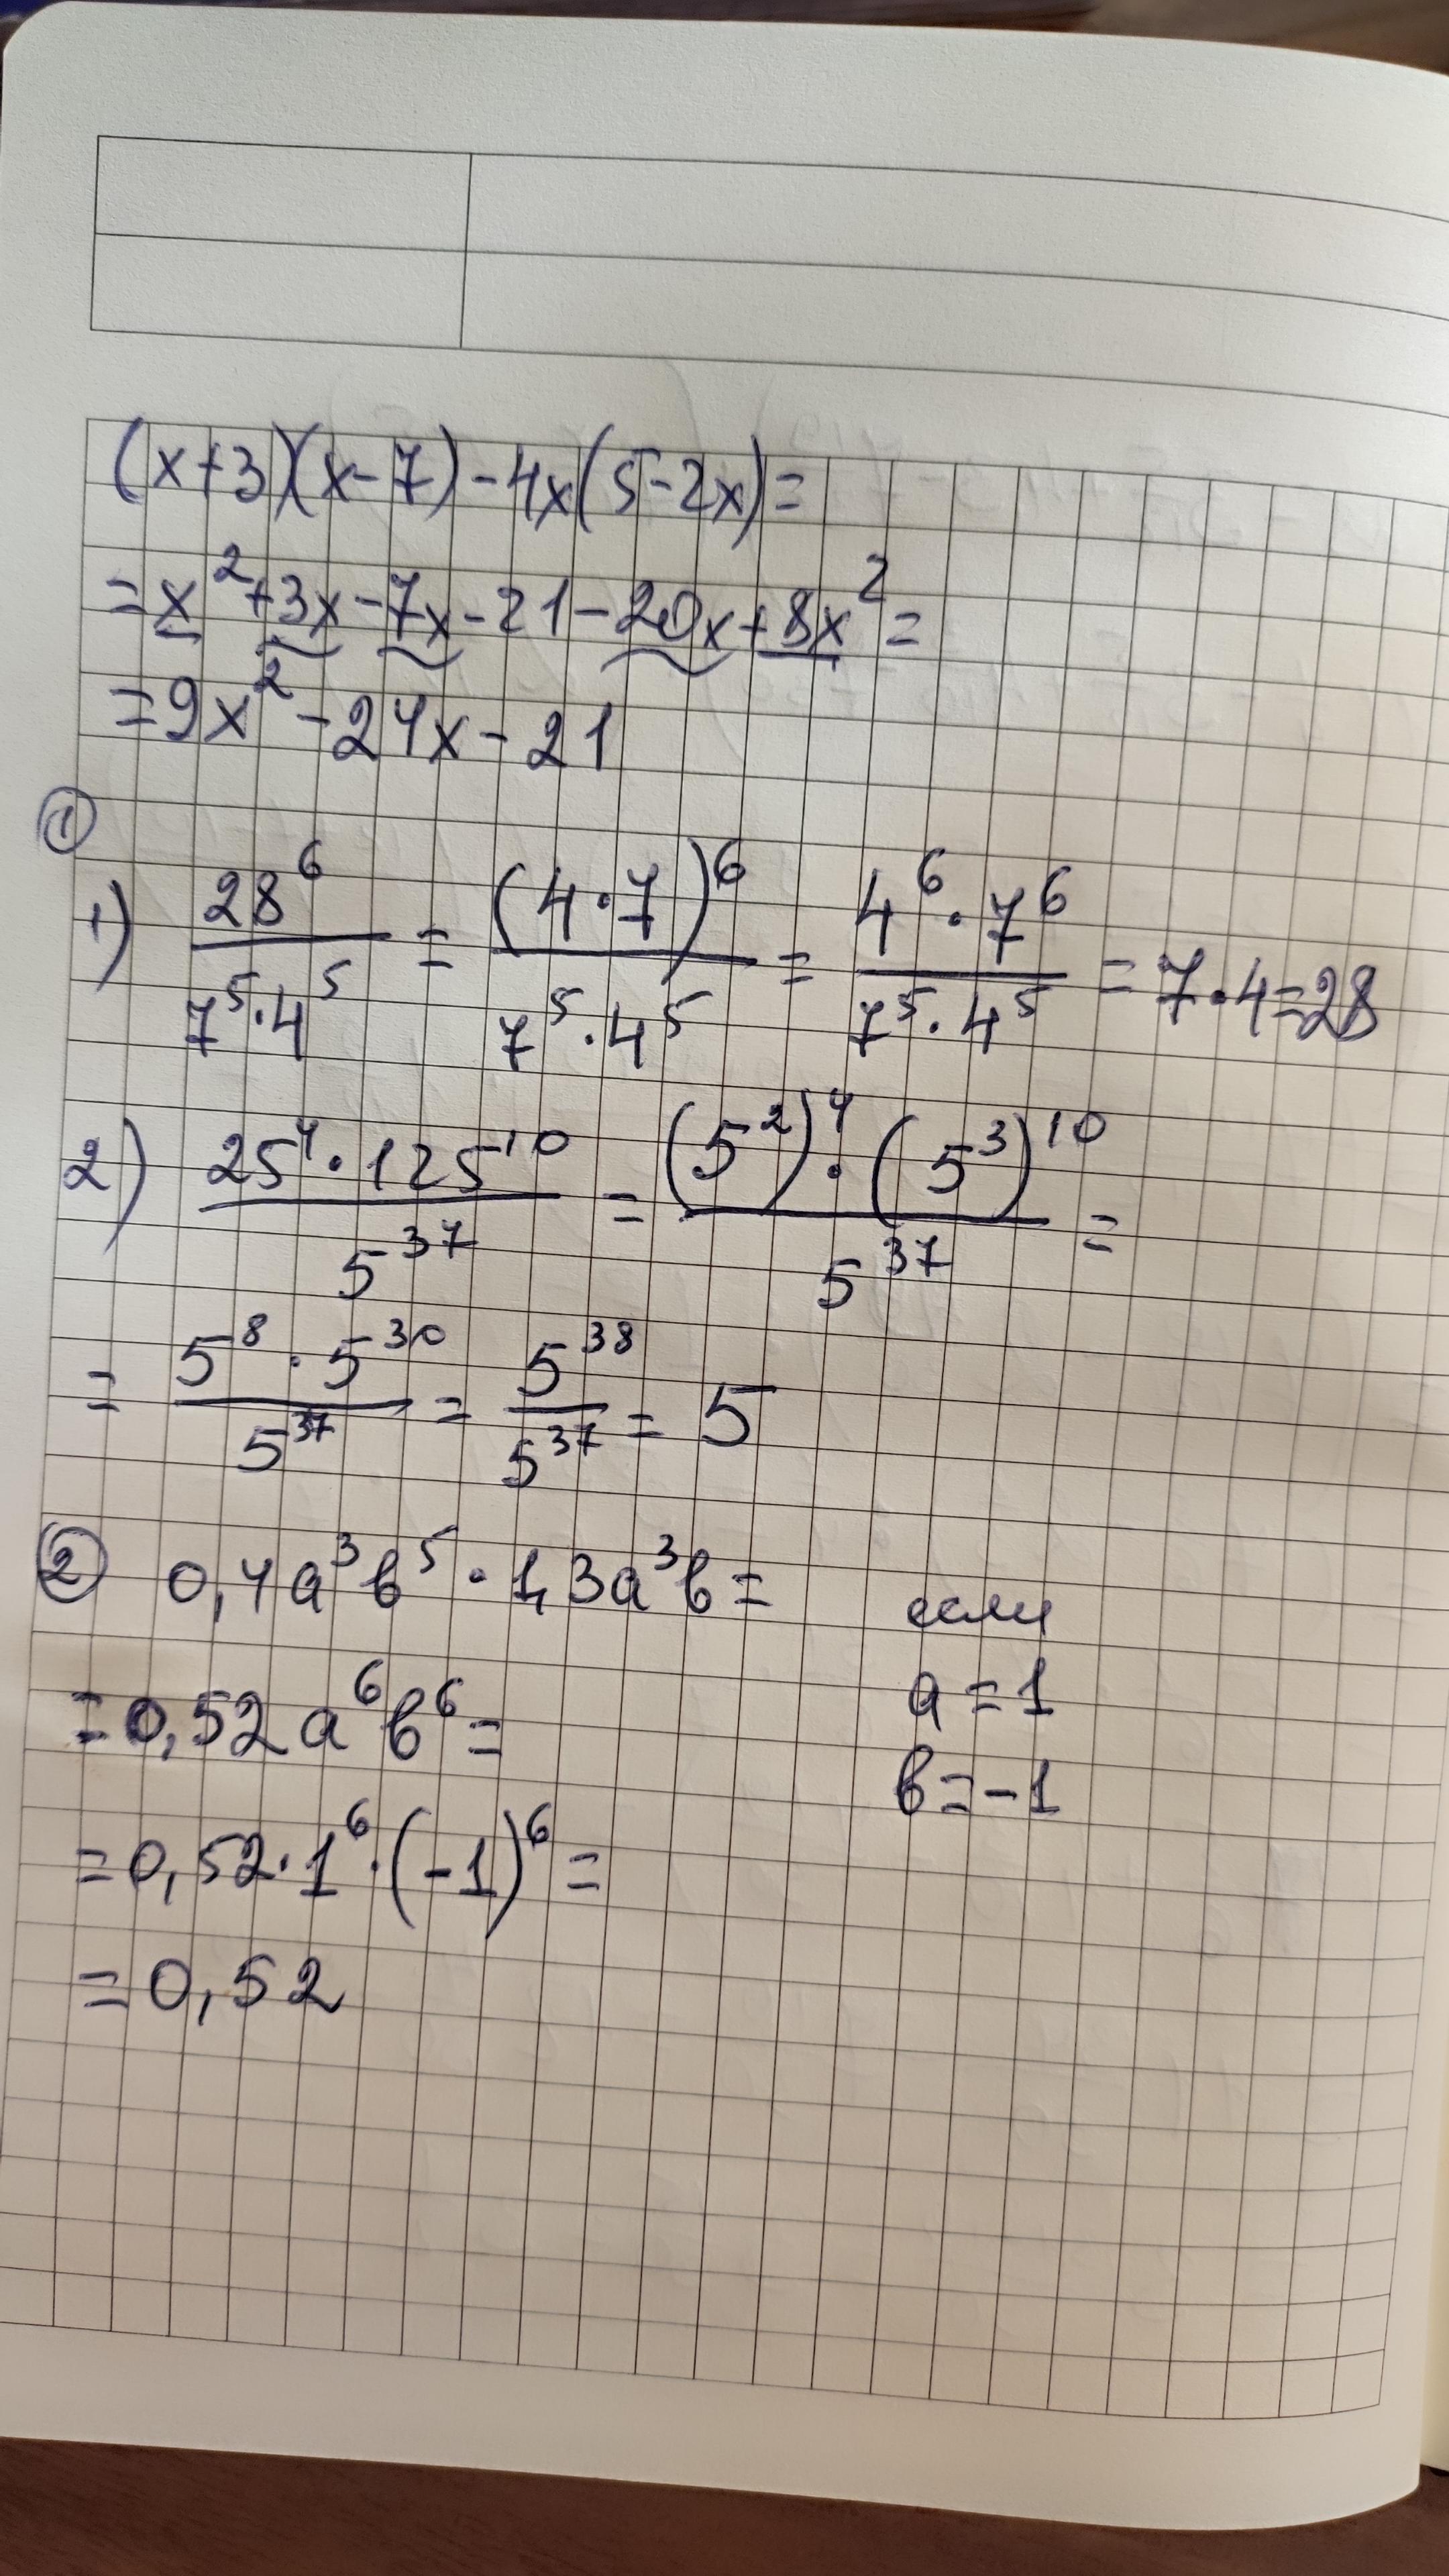 (x+3)(x-7)-4x(5-2x)=
=x²+3x-7x-21-20x+8x²=
=9x²-24x-21
①
1) 28⁶/(7⁵·4⁵) = (4·7)⁶/(7⁵·4⁵) = (4⁶·7⁶)/(7⁵·4⁵) = 7·4=28
2) (25⁴·125¹⁰)/5³⁷ = ((5²)⁴·(5³)¹⁰)/5³⁷ =
= (5⁸·5³⁰)/5³⁷ = 5³⁸/5³⁷ = 5
② 0,4a³b⁵·1,3a³b= если
=0,52a⁶b⁶= a=1
b=-1
=0,52·1⁶·(-1)⁶=
=0,52